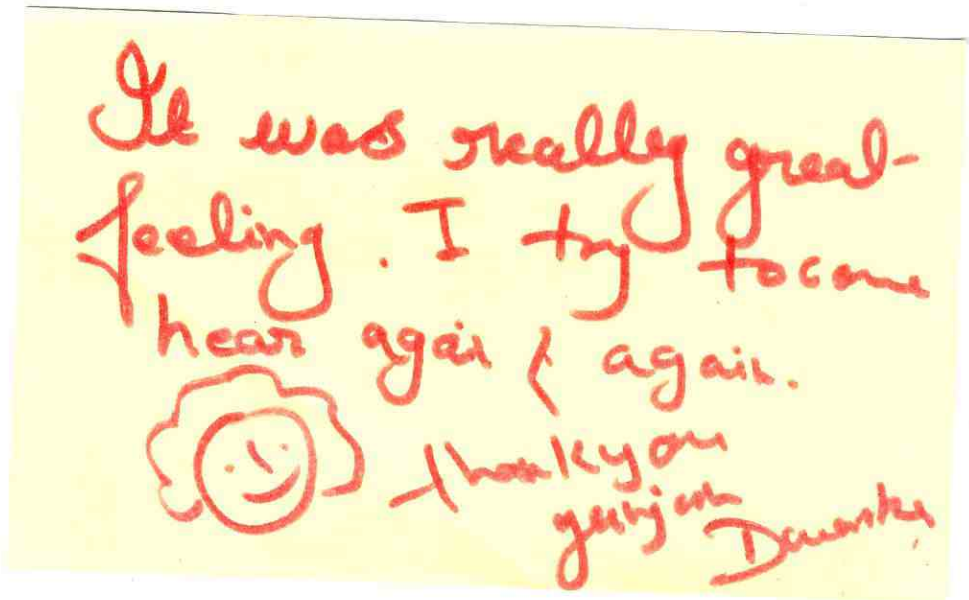 It was really great
feeling. I try to come
hear again & again.
Thankyou
gunjan